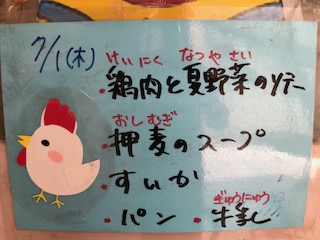 7/1(木)
けいにく なつやさい
・鶏肉と夏野菜のソテー
おしむぎ
・押麦のスープ
・すいか
ぎゅうにゅう
・パン ・牛乳